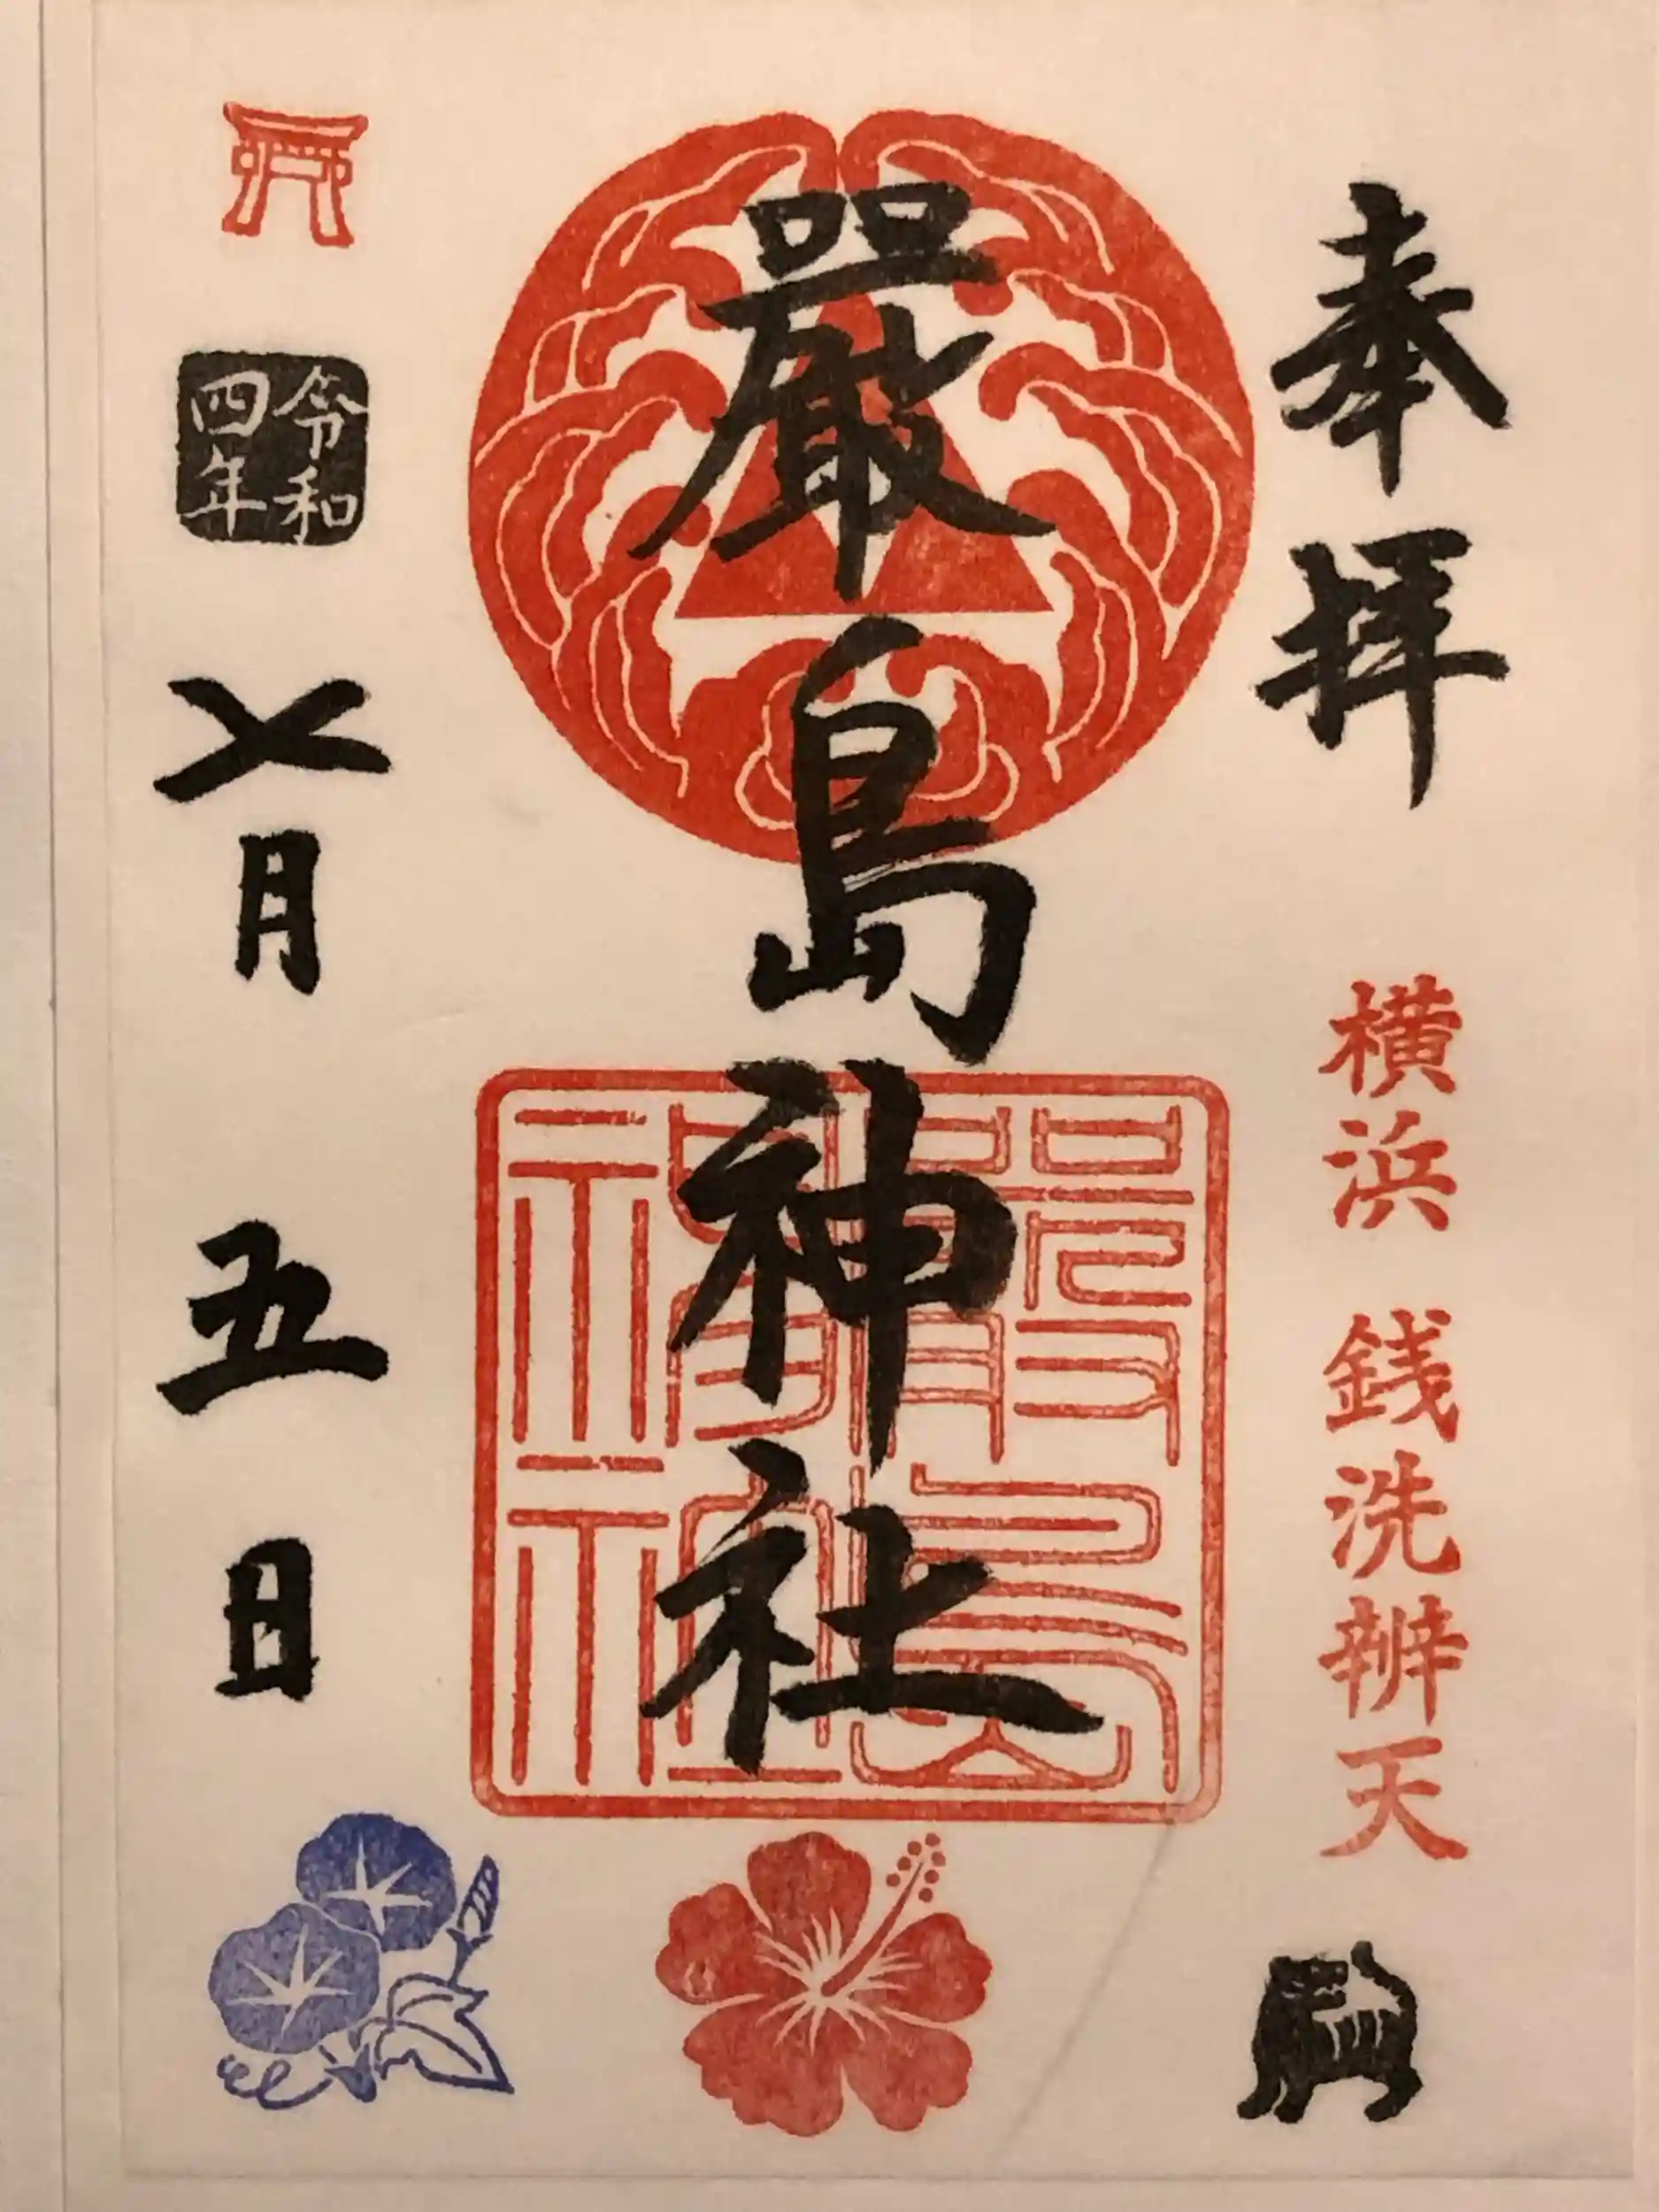 奉拝
横浜 銭洗辨天
嚴島神社
嚴島神社
令和四年
七月
五日